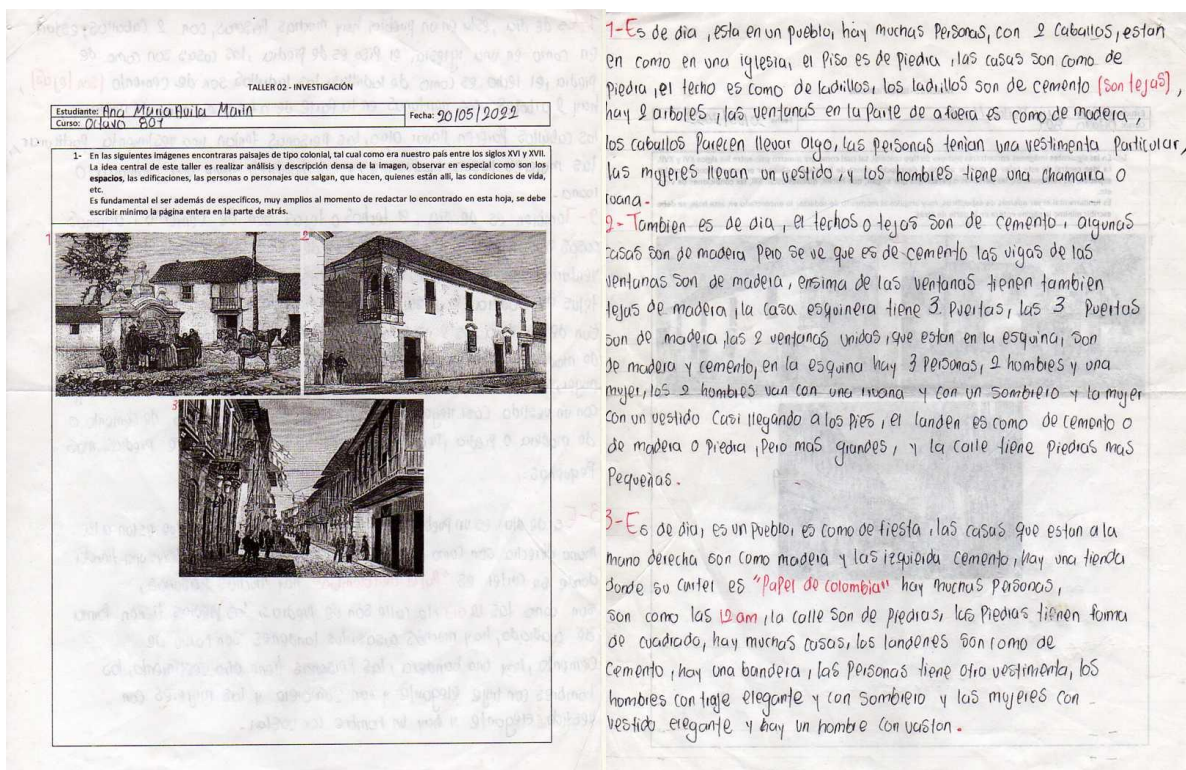 TALLER 02 - INVESTIGACIÓN
Estudiante: Ana Maria Avila Marin
Fecha: 20/05/2022
Curso: Octavo 801
1- En las siguientes imágenes encontraras paisajes de tipo colonial, tal cual como era nuestro país entre los siglos XVI y XVII.
La idea central de este taller es realizar análisis y descripción densa de la imagen, observar en especial como son los
espacios, las edificaciones, las personas o personajes que salgan, que hacen, quienes están allí, las condiciones de vida,
etc.
Es fundamental el ser además de específicos, muy amplios al momento de redactar lo encontrado en esta hoja, se debe
escribir mínimo la página entera en la parte de atrás.
1
2
3
1-Es de dia, esta en un pueblo, hay muchas Personas, con 2 caballos, estan
en como en una iglesia, el Piso es de Piedra, las casas son como de
Piedra, el techo es como de ladillos, los ladillos son de cemento (son tejas),
hay 2 arboles, las ventanas en la Parte de afuera es como de madera,
los caballos Parecen llevar algo, las Personas tenian una vestimenta Particular,
las mujeres llevan un vestido, y los hombres tiene una chamarra o
ruana.
2- Tambien es de dia, el techos o tejas son de cemento, algunas
casas son de madera Pero se ve que es de cemento las vigas de las
ventanas son de madera, ensima de las ventanas tienen tambien
tejas de madera, la casa esquinera tiene 3 Puertas, las 3 Puertas
son de madera, las 2 ventanas unidos, que estan en la esquina, son
de madera y cemento, en la esquina hay 3 Personas, 2 hombres y una
mujer, los 2 hombres van con una ruana y con un Sombrero y la mujer
con un vestido Casi llegando a los Pies, el landen es como de cemento o
de madera o Piedra, Pero mas grandes, y la calle tiene Piedras mas
Pequeñas.
3-Es de dia, es un Pueblo, es como de fiesta, las casas que estan a la
mano derecha son como madera y las izquierda cemento, hay una tienda
donde su cartel es "Papel de colombia" hay muchas Personas,
son como las 12am, la calle son de Piedras, las Piedras tienen forma
de cuadrado, hay muchas casas, los landenes son como de
cemento, hay una bandera, las Personas tiene otra vestimenta, los
hombres con traje elegante y con sombrero y las mujeres con
vestido elegante y hay un hombre con vaston.